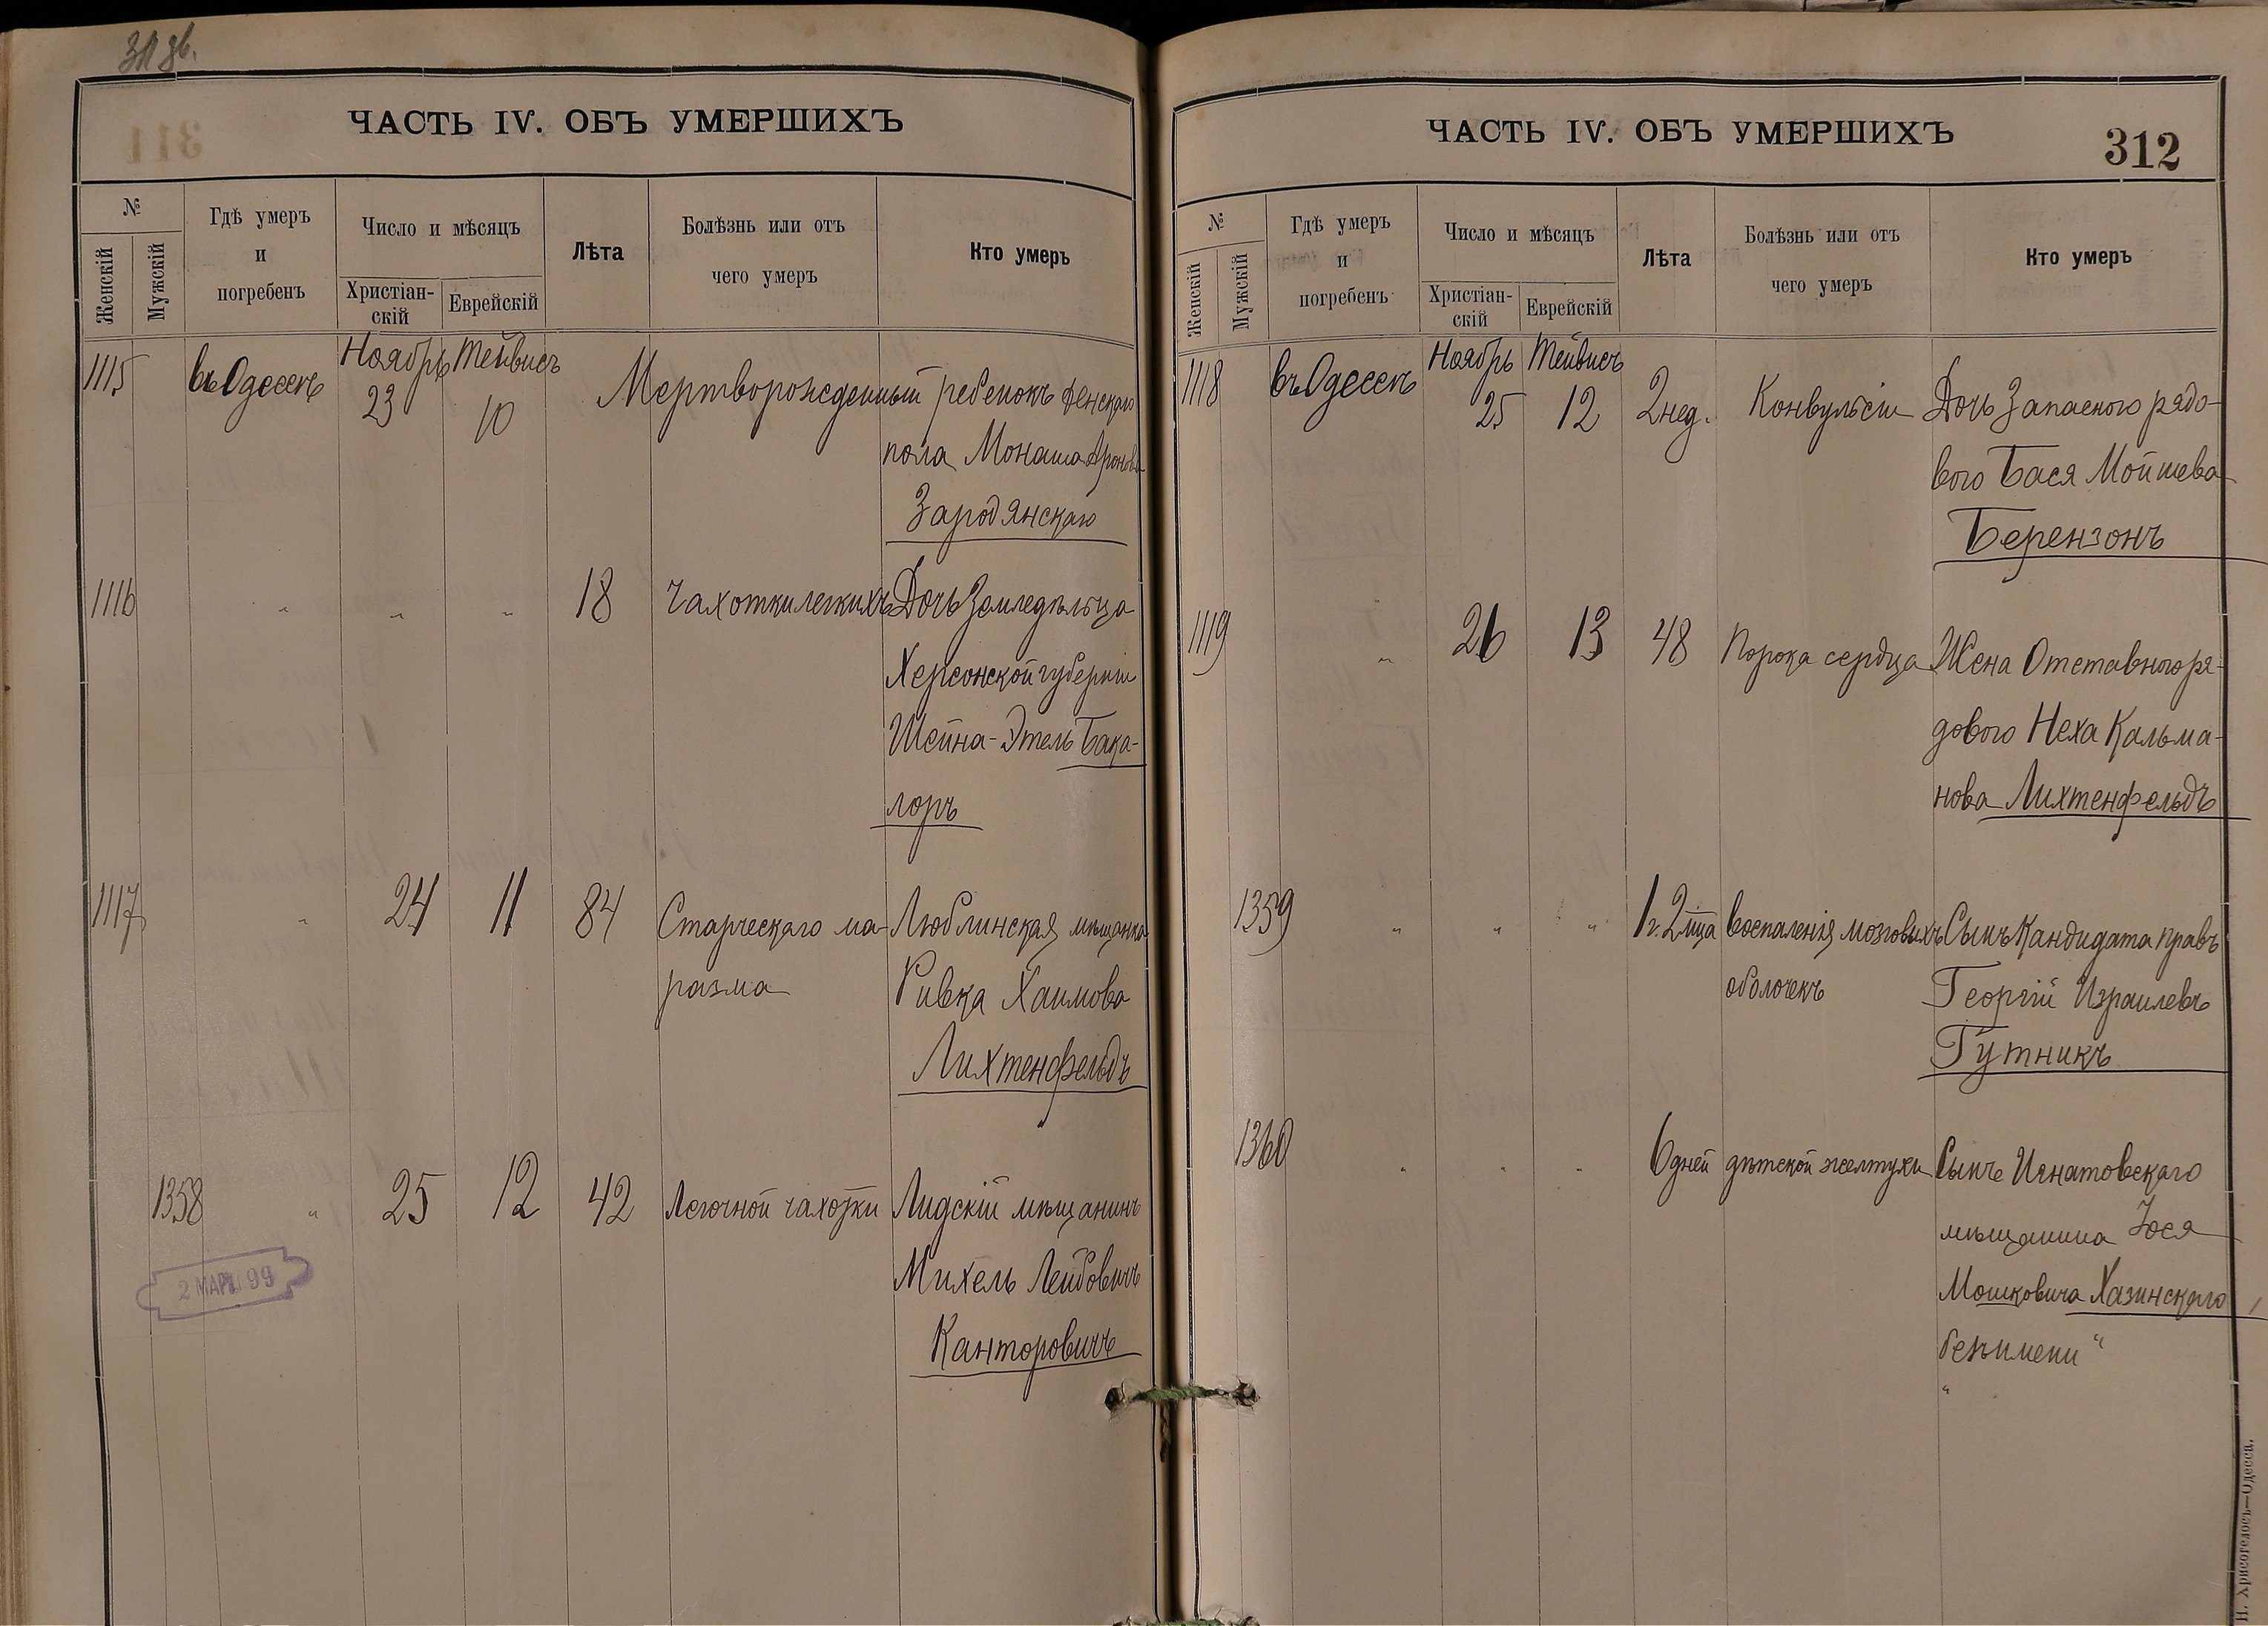 ЧАСТЬ IV. ОБЪ УМЕРШИХЪ
№
Женскій
Мужскій
Гдѣ умеръ
и
погребенъ
Число и мѣсяцъ
Христіан-
скій
Еврейскій
Лѣта
Болѣзнь или отъ
чего умеръ
Кто умеръ
1115 въ Одессѣ Ноябрь 23 Тейвисъ 10 Мертворожденный ребенокъ женскаго
пола Монаша Аронова
Зародянскаго
1116 " " " 18 Чахотки легкихъ Дочь Земледѣльца
Херсонской губерніи
Шейна-Этель Бака-
лоръ
1117 " 24 11 84 Старческаго ма- Люблинская мѣщанка
разма Ривка Хаимова
Лихтенфельдъ
1358 " 25 12 42 Легочной чахотки Лидскій мѣщанинъ
2 МАР. 99
Михель Лейбовичъ
Канторовичъ
ЧАСТЬ IV. ОБЪ УМЕРШИХЪ
312
№
Женскій
Мужскій
Гдѣ умеръ
и
погребенъ
Число и мѣсяцъ
Христіан-
скій
Еврейскій
Лѣта
Болѣзнь или отъ
чего умеръ
Кто умеръ
1118 въ Одессѣ Ноябрь 25 Тейвисъ 12 2 нед. Конвульсіи Дочь Запасного рядо-
вого Бася Мойшева
Берензонъ
1119 " 26 13 48 Порока сердца Жена Отставного ря-
дового Неха Кальма-
нова Лихтенфельдъ
1359 " " " 1 г. 2 мца Воспаленія мозговыхъ Сынъ Кандидата правъ
оболочекъ Георгій Израилевъ
Гутникъ
1360 " " " 6 дней дѣтской желтухи Сынъ Игнатовскаго
мѣщанина Іося
Мошковича Хазинскаго
безъ имени "
Н. Хрисогелосъ—Одесса.